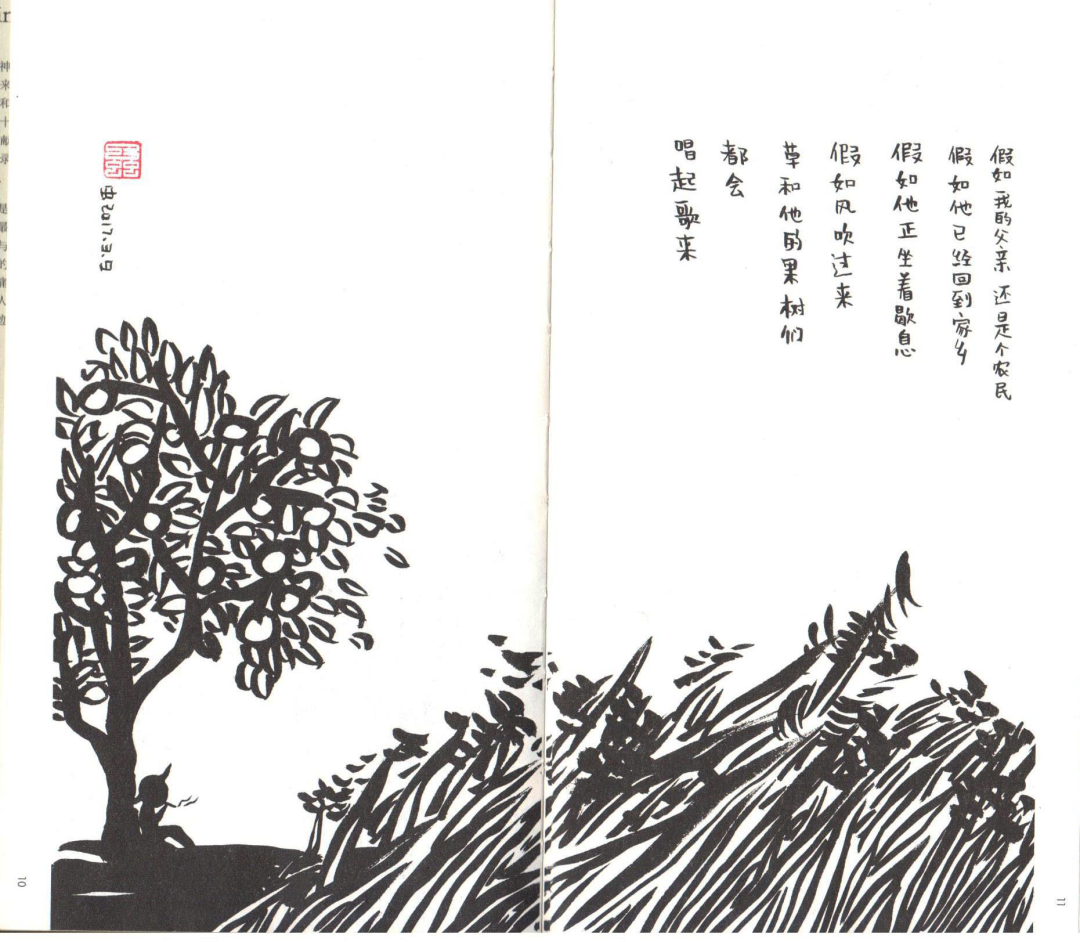 假如我的父亲 还是个农民
假如他已经回到家乡
假如他正坐着歇息
假如风吹过来
草和他的果树们
都会
唱起歌来
虫2017.3.9
10
11